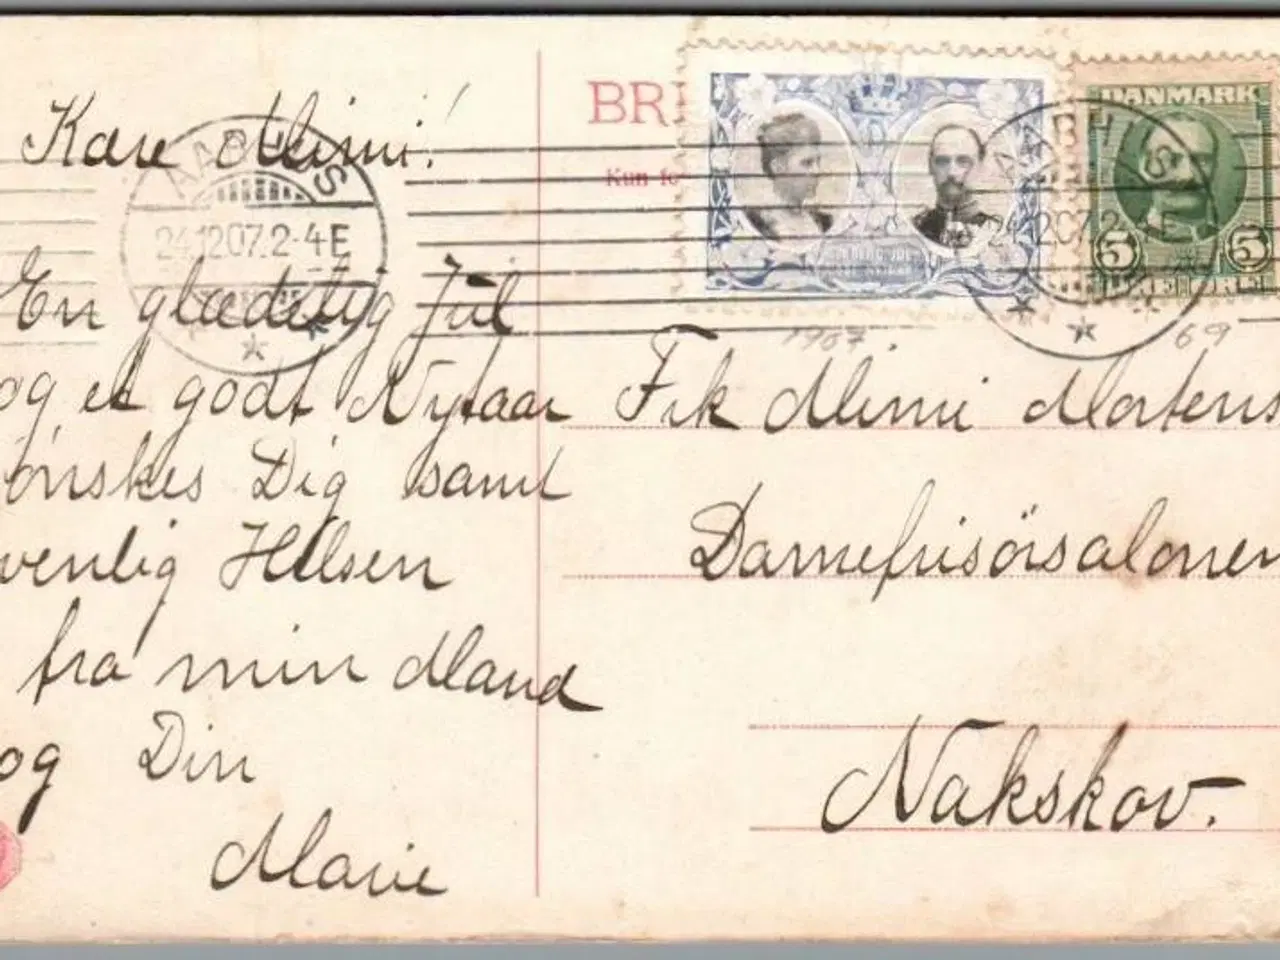 Kære Mimi!
En glædelig Jul
og et godt Nytaar
ønskes Dig samt
venlig Hilsen
fra min Mand
og Din
Marie
AARHUS
24.12.07.2-4E
BR
Kun fo
DANMARK
5 5
AARHUS
24.12.07.2-4E
1907
69
Frk Mimi Mortens
Damefrisörsalonen
Nakskov.